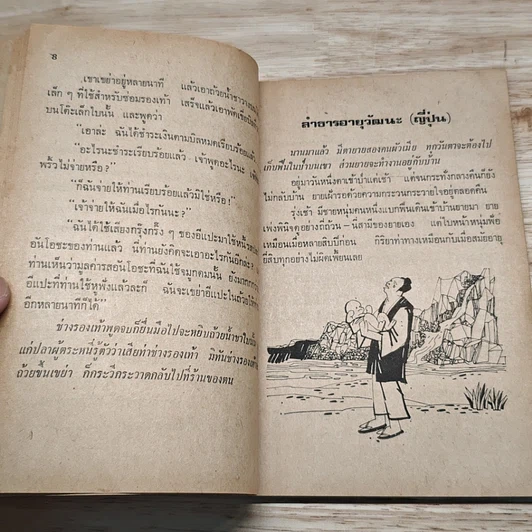 ๖
เขาเขย่าอยู่หลายนาที แล้วเอาถ้วยน้ำชาวาง
เล็ก ๆ ที่ใช้สำหรับซ่อมรองเท้า เสร็จแล้วเอาพัด
บนโต๊ะเล็กใบนั้น และพูดว่า
"เอาล่ะ ฉันได้ชำระเงินตามบิลหมดเรียบร้อยแล้ว
"อะไรนะชำระเรียบร้อยแล้ว เจ้าพูดอะไรนะ
พริ้วไม่จ่ายหรือ?"
"ก็ฉันจ่ายให้ท่านเรียบร้อยแล้วมิใช่หรือ?"
"เจ้าจ่ายให้ฉันเมื่อไรกันนะ?"
"ฉันได้ใช้เสียงกรุ๊งกริ๊ง ๆ ของอีแปะมาใช้หนี้
อันโอชะของท่านแล้ว นี่ท่านยังคิดจะเอาอะไรกันอีกล่ะ?
ท่านเห็นว่ามูลค่ารสอันโอชะที่ฉันใช้จมูกดมนั้น ยังมาก
อีแปะที่ท่านได้ใช้หูฟังแล้วละก็ ฉันจะเขย่าอีแปะในถ้วยให้
อีกหลายนาทีก็ได้"
ช่างรองเท้าพูดจบก็ยื่นมือไปจะหยิบถ้วยน้ำชา
แก่ปลาผู้ตระหนี่รู้ตัวว่าเสียท่าช่างรองเท้า มิทันช่างรองเท้า
ถ้วยขึ้นเขย่า ก็กระวีกระวาดกลับไปที่ร้านของตน
ลำธารอายุวัฒนะ (ญี่ปุ่น)
นานมาแล้ว มีตายายสองคนผัวเมีย ทุกวันตาจะต้องไป
เก็บฟืนในป่าบนเขา ส่วนยายจะทำงานอยู่กับบ้าน
อยู่มาวันหนึ่งตาเข้าป่าแต่เช้า แต่จนกระทั่งกลางคืนก็ยัง
ไม่กลับบ้าน ยายเฝ้ารอด้วยความกระวนกระวายใจอยู่ตลอดคืน
รุ่งเช้า มีชายหนุ่มคนหนึ่งแบกฟืนเดินเข้าบ้านยายมา ยาย
เพ่งพินิจดูอย่างถี่ถ้วน – นี่สามีของยายเอง แต่ใบหน้าหนุ่มฟ้อ
เหมือนเมื่อหลายสิบปีก่อน กิริยาท่าทางเหมือนกับเมื่อสมัยอายุ
ยี่สิบทุกอย่างไม่ผิดเพี้ยนเลย